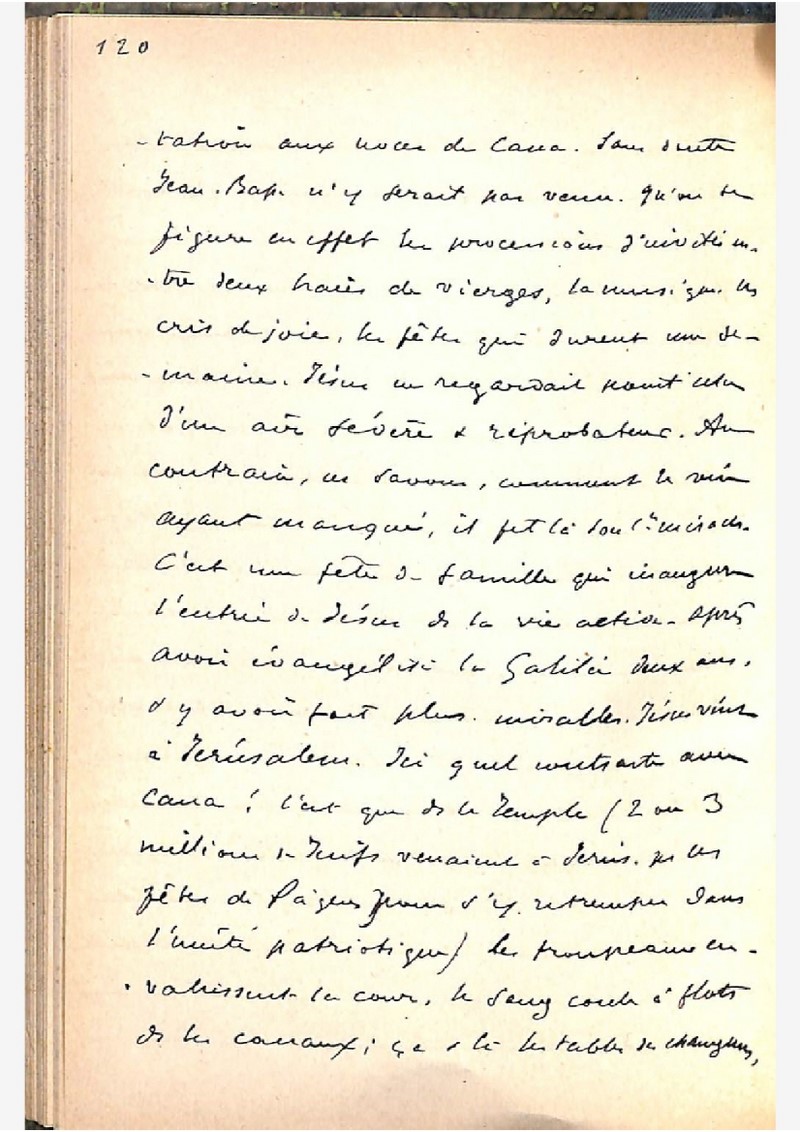 120
-tation aux noces de Cana. Sans doute
Jean-Bap. n'y serait pas venu. Qu'on se
figure en effet les processions d'invités en-
-tre deux haies de vierges, la musique, les
cris de joie, les fêtes qui durent une se-
-maine. Jésus ne regardait point cela
d'un air sévère & réprobateur. Au
contraire, ns savons, comment le vin
ayant manqué, il fit là son 1er miracle.
C'est une fête de famille qui inaugure
l'entrée de Jésus ds la vie active. Après
avoir évangélisé la Galilée deux ans,
& y avoir fait plus. miracles. Jésus vint
à Jérusalem. Ici quel contraste avec
Cana ! C'est que ds le Temple (2 ou 3
millions de Juifs venaient à Jérus. pr les
fêtes de Pâques pour s'y retremper dans
l'unité patriotique) les troupeaux en-
-vahissent la cour, le sang coule à flots
ds les canaux ; çà & là les tables des changeurs,